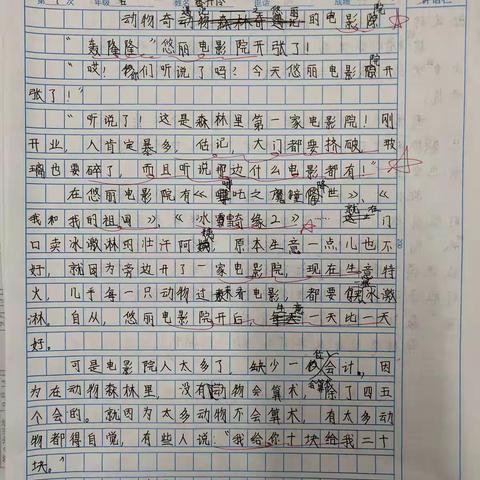 动物奇遇记悠丽的电影院
“轰隆隆”悠丽电影院开张了！
“哎！你们听说了吗？今天悠丽电影院开
张了！”
“听说了！这是森林里第一家电影院！刚
开业，人肯定暴多，估记，大门都要挤破，玻
璃也要碎了，而且听说那边什么电影都有！”
在悠丽电影院有《哪吒之魔童降世》，《
我和我的祖国》，《冰雪奇缘2》就在门
口卖冰激淋的壮汗阿，原本生意一点儿也不
好，就因为旁边开了一家电影院，现在生意特
火，几乎每一只动物过来看电影，都要买冰激
淋。自从，悠丽电影院开后，生意一天比一天
好。
可是电影院人太多了，缺少一位会计，因
为在动物森林里，没有动物会算术，除了四五
个会的。就因为太多动物不会算术，有太多动
物都得自觉，有些人说：“我给你十块给我二十
块。”